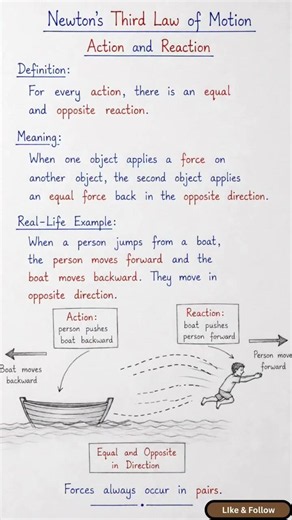 Newton's Third Law of Motion
Action and Reaction
Definition:
For every action, there is an equal
and opposite reaction.
Meaning:
When one object applies a force on
another object, the second object applies
an equal force back in the opposite direction.
Real-Life Example:
When a person jumps from a boat,
the person moves forward and the
boat moves backward. They move in
opposite direction.
Action:
person pushes
boat backward
Reaction:
boat pushes
person forward
Boat moves
backward
Person moves
forward
Equal and Opposite
in Direction
Forces always occur in pairs.
Like & Follow